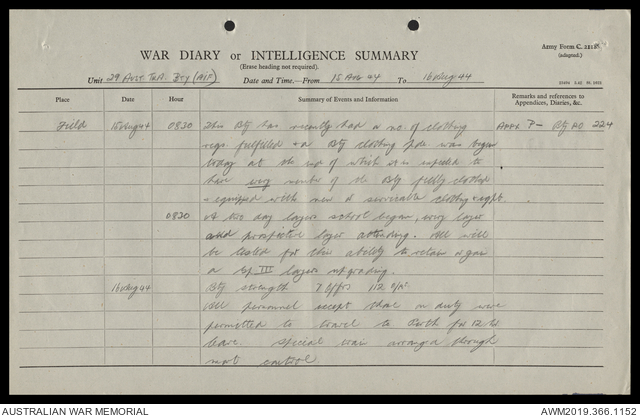 Army Form C. 2118
(adapted.)
WAR DIARY or INTELLIGENCE SUMMARY
(Erase heading not required).
Unit 29 Aust Bty (AIF)
Date and Time.—From 15 Aug 44 To 16 Aug 44
Place Date Hour Summary of Events and Information Remarks and references to Appendices, Diaries, &c.
Field 15 Aug 44 0830 This Bty has recently had a no. of clothing Appx Bty RO 224
reqs fulfilled & a Bty clothing was begun
today at the end of which it is expected to
have every member of the Bty fully clothed
& equipped with new & serviceable clothing & eqpt.
0830 A two day layers school began, every layer
and prospective layer attending. All will
be tested for their ability to retain or gain
a Gp III layers upgrading.
16 Aug 44 Bty strength 7 Offrs 112 O/Rs
All personnel except those on duty were
permitted to travel to Perth for 12 hr
leave. Special train arranged through
mov't control.
AUSTRALIAN WAR MEMORIAL
AWM2019.366.1152